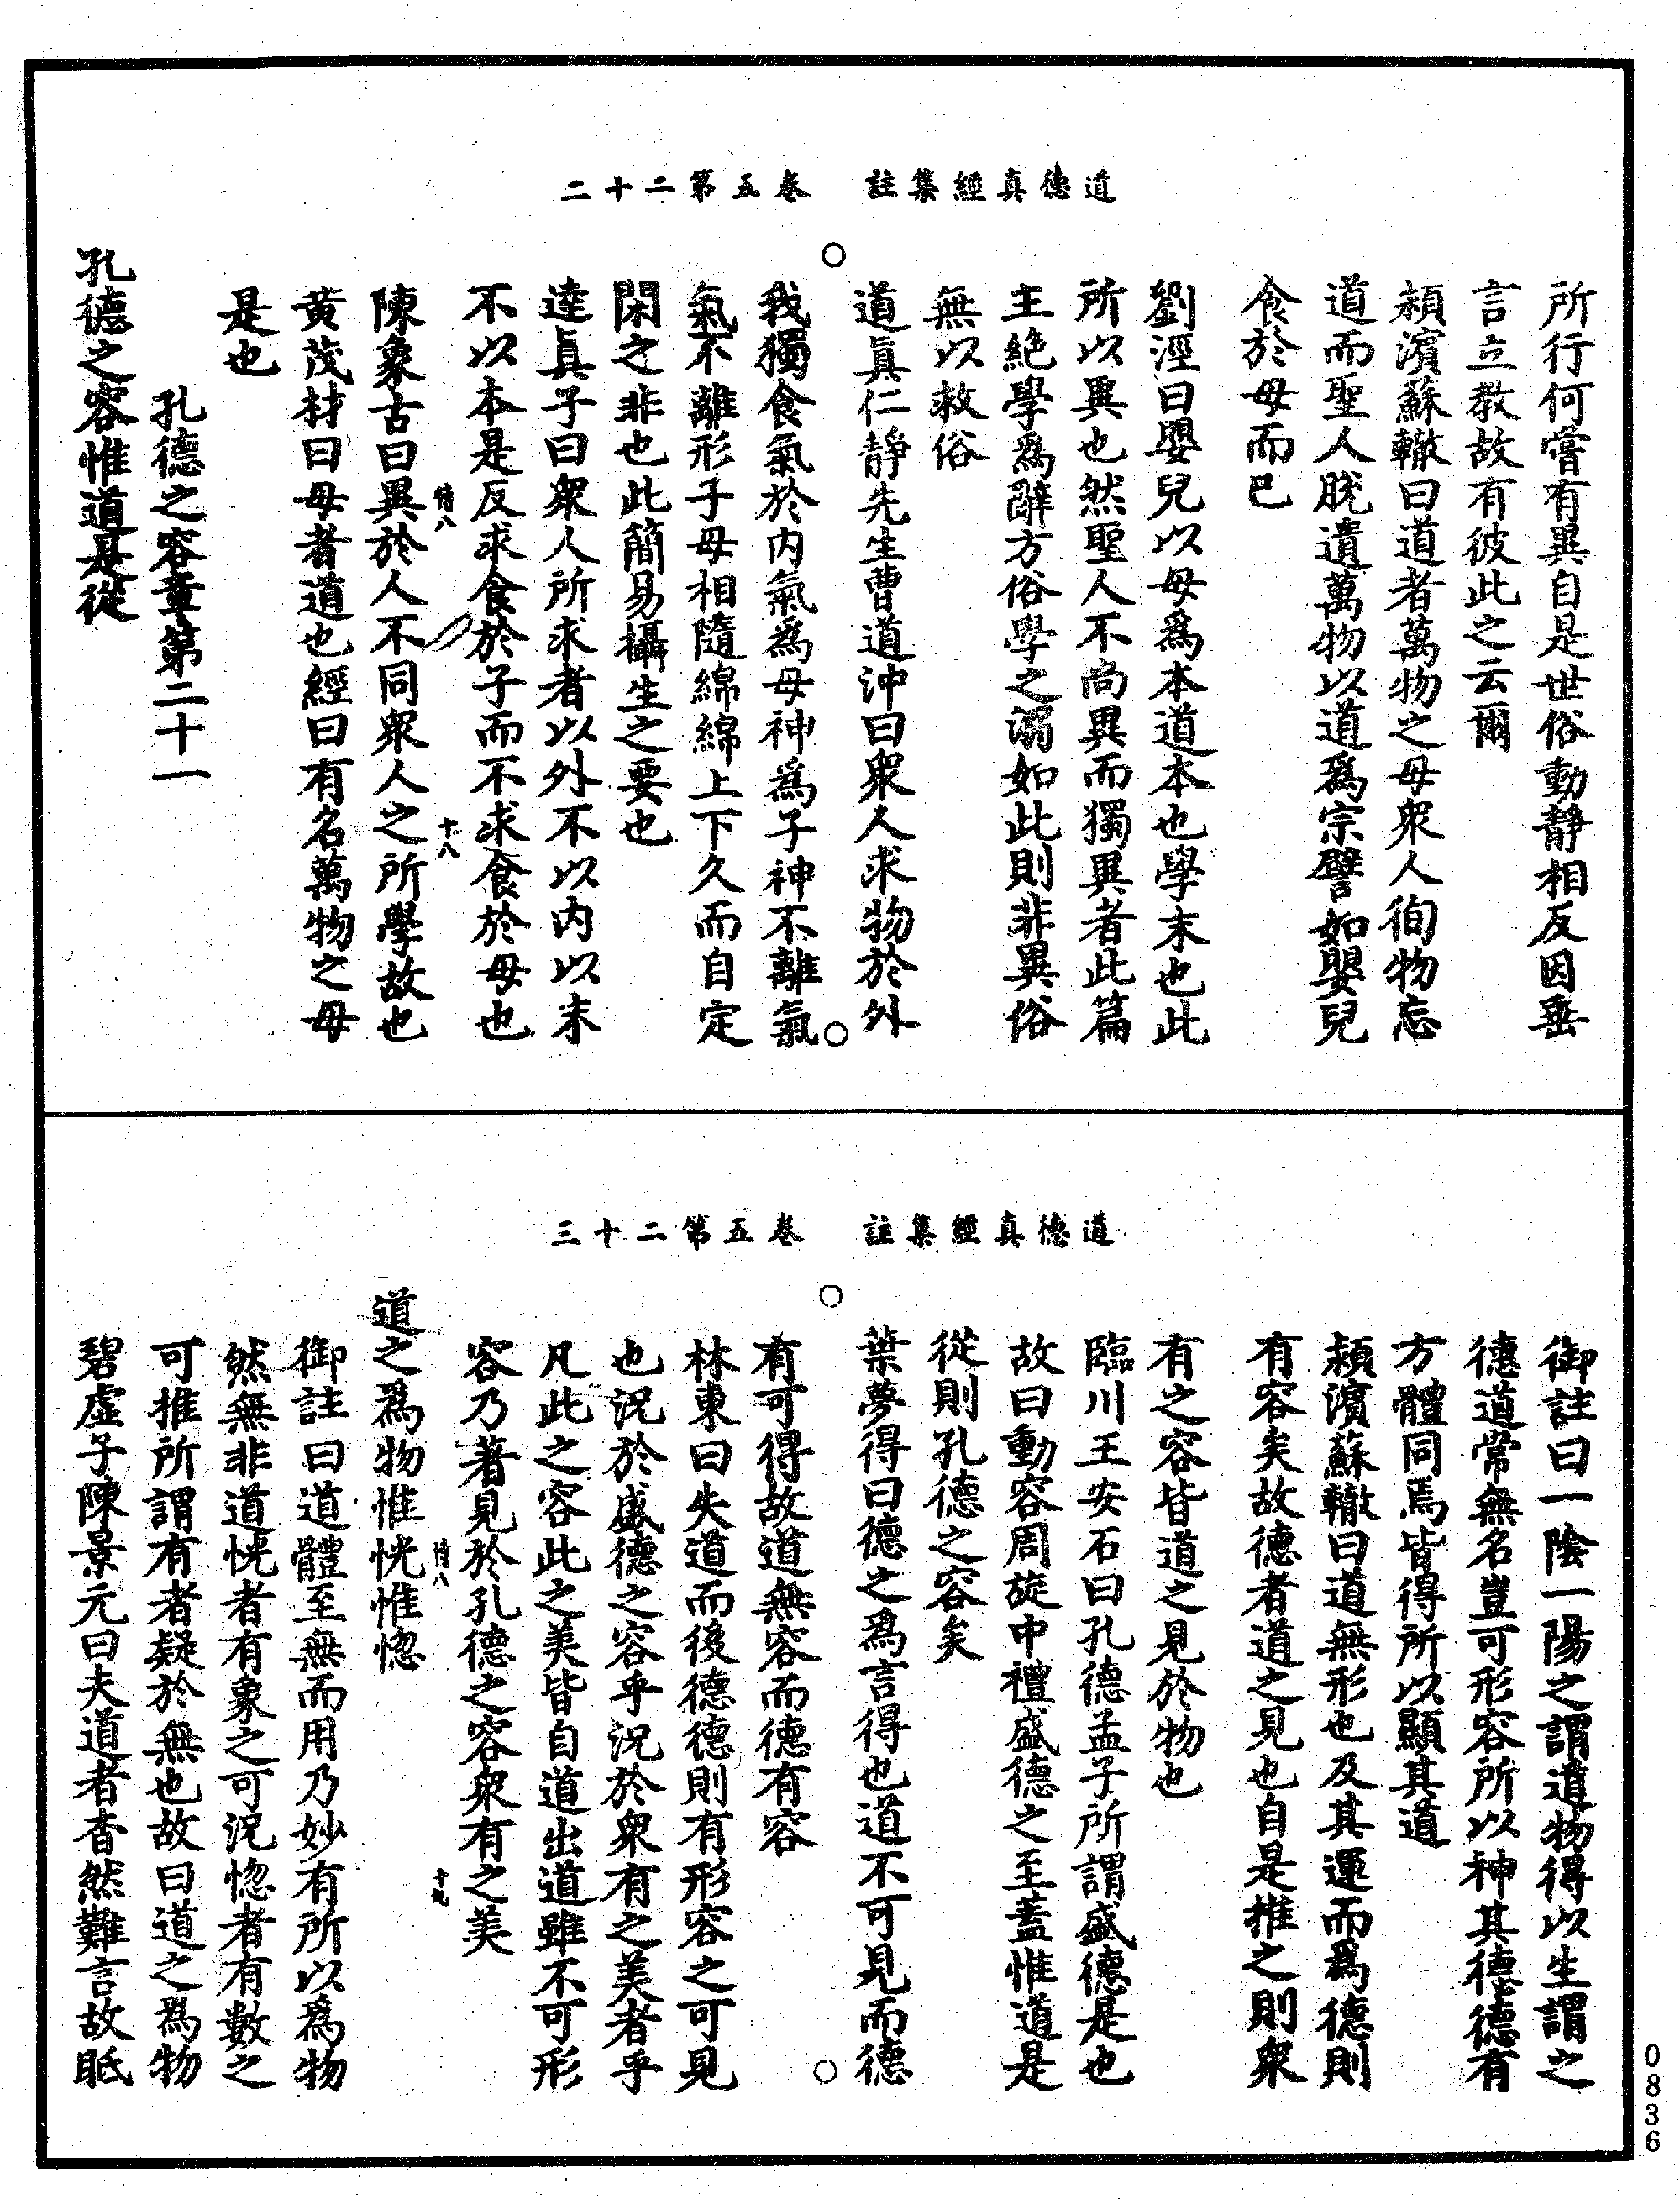 道德真經集註　卷五第二十二
所行何嘗有異自是世俗動靜相反因垂
言立教故有彼此之云爾
潁濱蘇轍曰道者萬物之母衆人徇物忘
道而聖人脫遺萬物以道爲宗譬如嬰兒
食於母而巳
劉涇曰嬰兒以母爲本道本也學末也此
所以異也然聖人不尚異而獨異者此篇
主絶學爲辭方俗學之溺如此則非異俗
無以救俗
道眞仁靜先生曹道沖曰衆人求物於外
我獨食氣於内氣爲母神爲子神不離氣
氣不離形子母相隨綿綿上下久而自定
閑之非也此簡易攝生之要也
達眞子曰衆人所求者以外不以内以末
不以本是反求食於子而不求食於母也
陳象古曰異於人不同衆人之所學故也
黄茂材曰母者道也經曰有名萬物之母
是也
孔德之容章第二十一
孔德之容惟道是從
道德真經集註　卷五第二十三
御註曰一陰一陽之謂道物得以生謂之
德道常無名豈可形容所以神其德德有
方體同焉皆得所以顯其道
潁濱蘇轍曰道無形也及其運而爲德則
有容矣故德者道之見也自是推之則衆
有之容皆道之見於物也
臨川王安石曰孔德孟子所謂盛德是也
故曰動容周旋中禮盛德之至蓋惟道是
從則孔德之容矣
葉夢得曰德之爲言得也道不可見而德
有可得故道無容而德有容
林東曰失道而後德德則有形容之可見
也況於盛德之容乎況於衆有之美者乎
凡此之容此之美皆自道出道雖不可形
容乃著見於孔德之容衆有之美
道之爲物惟恍惟惚
御註曰道體至無而用乃妙有所以爲物
然無非道恍者有象之可況惚者有數之
可推所謂有者疑於無也故曰道之爲物
碧虛子陳景元曰夫道者杳然難言故眂
十八
十九
0836